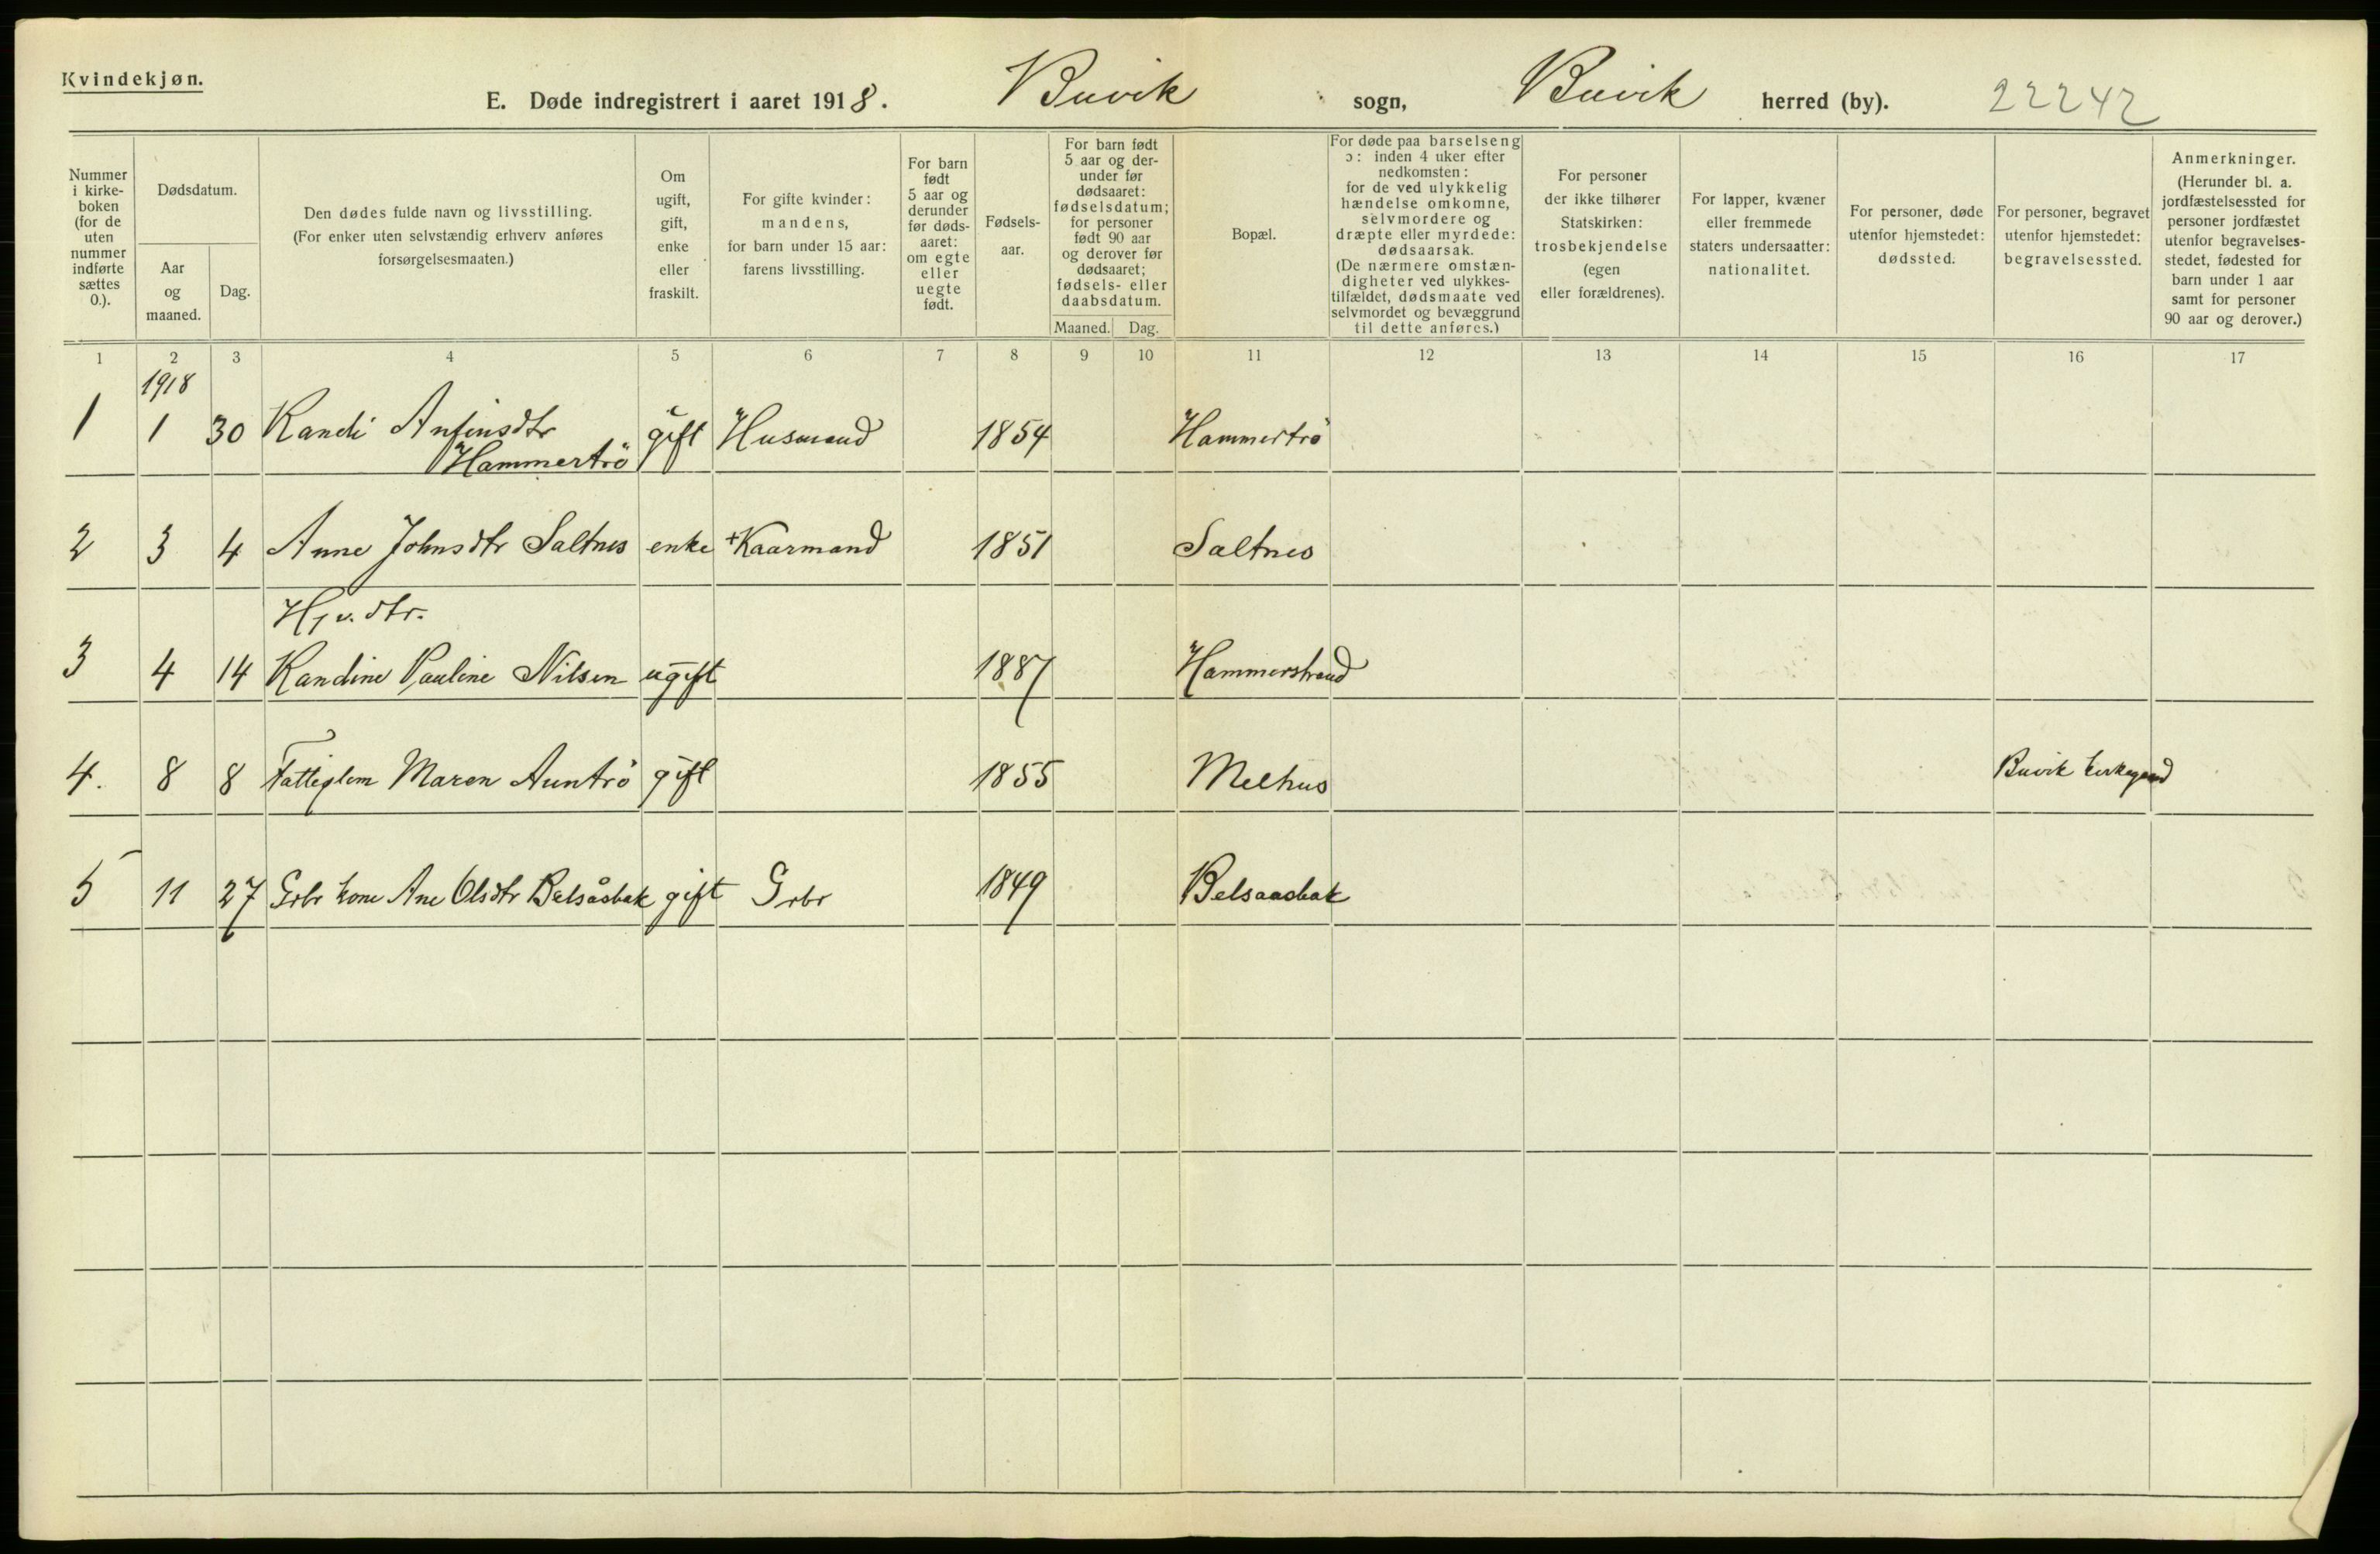 Kvindekjøn.
E. Døde indregistrert i aaret 1918. Buvik sogn, Buvik herred (by). 22242
Nummer i kirke- boken (for de uten nummer indførte sættes 0.).
Dødsdatum.
Aar og maaned.
Dag.
Den dødes fulde navn og livsstilling.
(For enker uten selvstændig erhverv anføres
forsørgelsesmaaten.)
Om ugift, gift, enke eller fraskilt.
For gifte kvinder:
mandens,
for barn under 15 aar:
farens livsstilling.
For barn født 5 aar og derunder før døds- aaret: om egte eller uegte født.
Fødsels- aar.
For barn født 5 aar og der- under før dødsaaret: fødselsdatum; for personer født 90 aar og derover før dødsaaret; fødsels- eller daabsdatum.
Maaned. Dag.
Bopæl.
For døde paa barselseng ɔ: inden 4 uker efter nedkomsten: for de ved ulykkelig hændelse omkomne, selvmordere og dræpte eller myrdede: dødsaarsak. (De nærmere omstæn- digheter ved ulykkes- tilfældet, dødsmaate ved selvmordet og bevæggrund til dette anføres.)
For personer der ikke tilhører Statskirken: trosbekjendelse (egen eller forældrenes).
For lapper, kvæner eller fremmede staters undersaatter: nationalitet.
For personer, døde utenfor hjemstedet: dødssted.
For personer, begravet utenfor hjemstedet: begravelsessted.
Anmerkninger. (Herunder bl. a. jordfæstelsessted for personer jordfæstet utenfor begravelses- stedet, fødested for barn under 1 aar samt for personer 90 aar og derover.)
1 2 3 4 5 6 7 8 9 10 11 12 13 14 15 16 17
1918
1 1 30 Randi Anfinsdtr gift Husmand 1854 Hammertrö
Hammertrö
2 3 4 Anne Johnsdtr Saltnes enke +Kaarmand 1851 Saltnes
Hjv. dtr.
3 4 14 Randine Pauline Nilsen ugift 1887 Hammerstrand
4. 8 8 Fattiglem Maren Auntrö gift 1855 Melhus Buvik kirkegaard
5 11 27 Grbr kone Ane Olsdtr Belsåsbak gift Grbr 1849 Belsaasbak